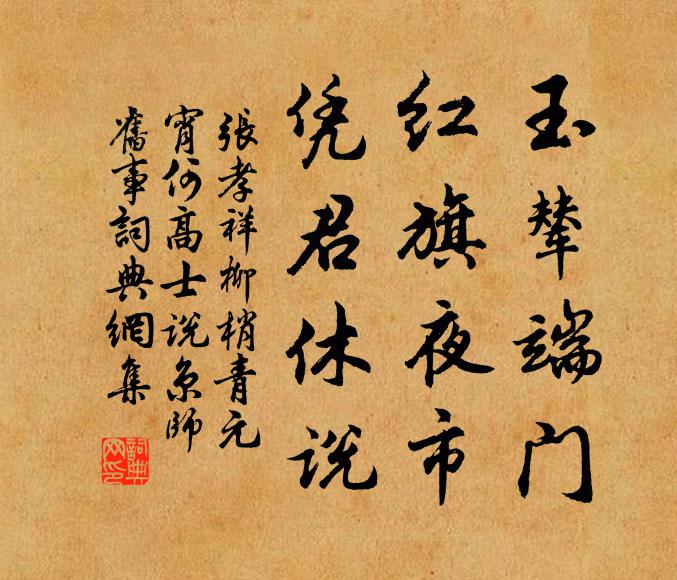 玉辇端门
红旗夜市
凭君休说
張孝祥柳梢青元
宵何高士说京師
舊事詞典網集
詞典
网印